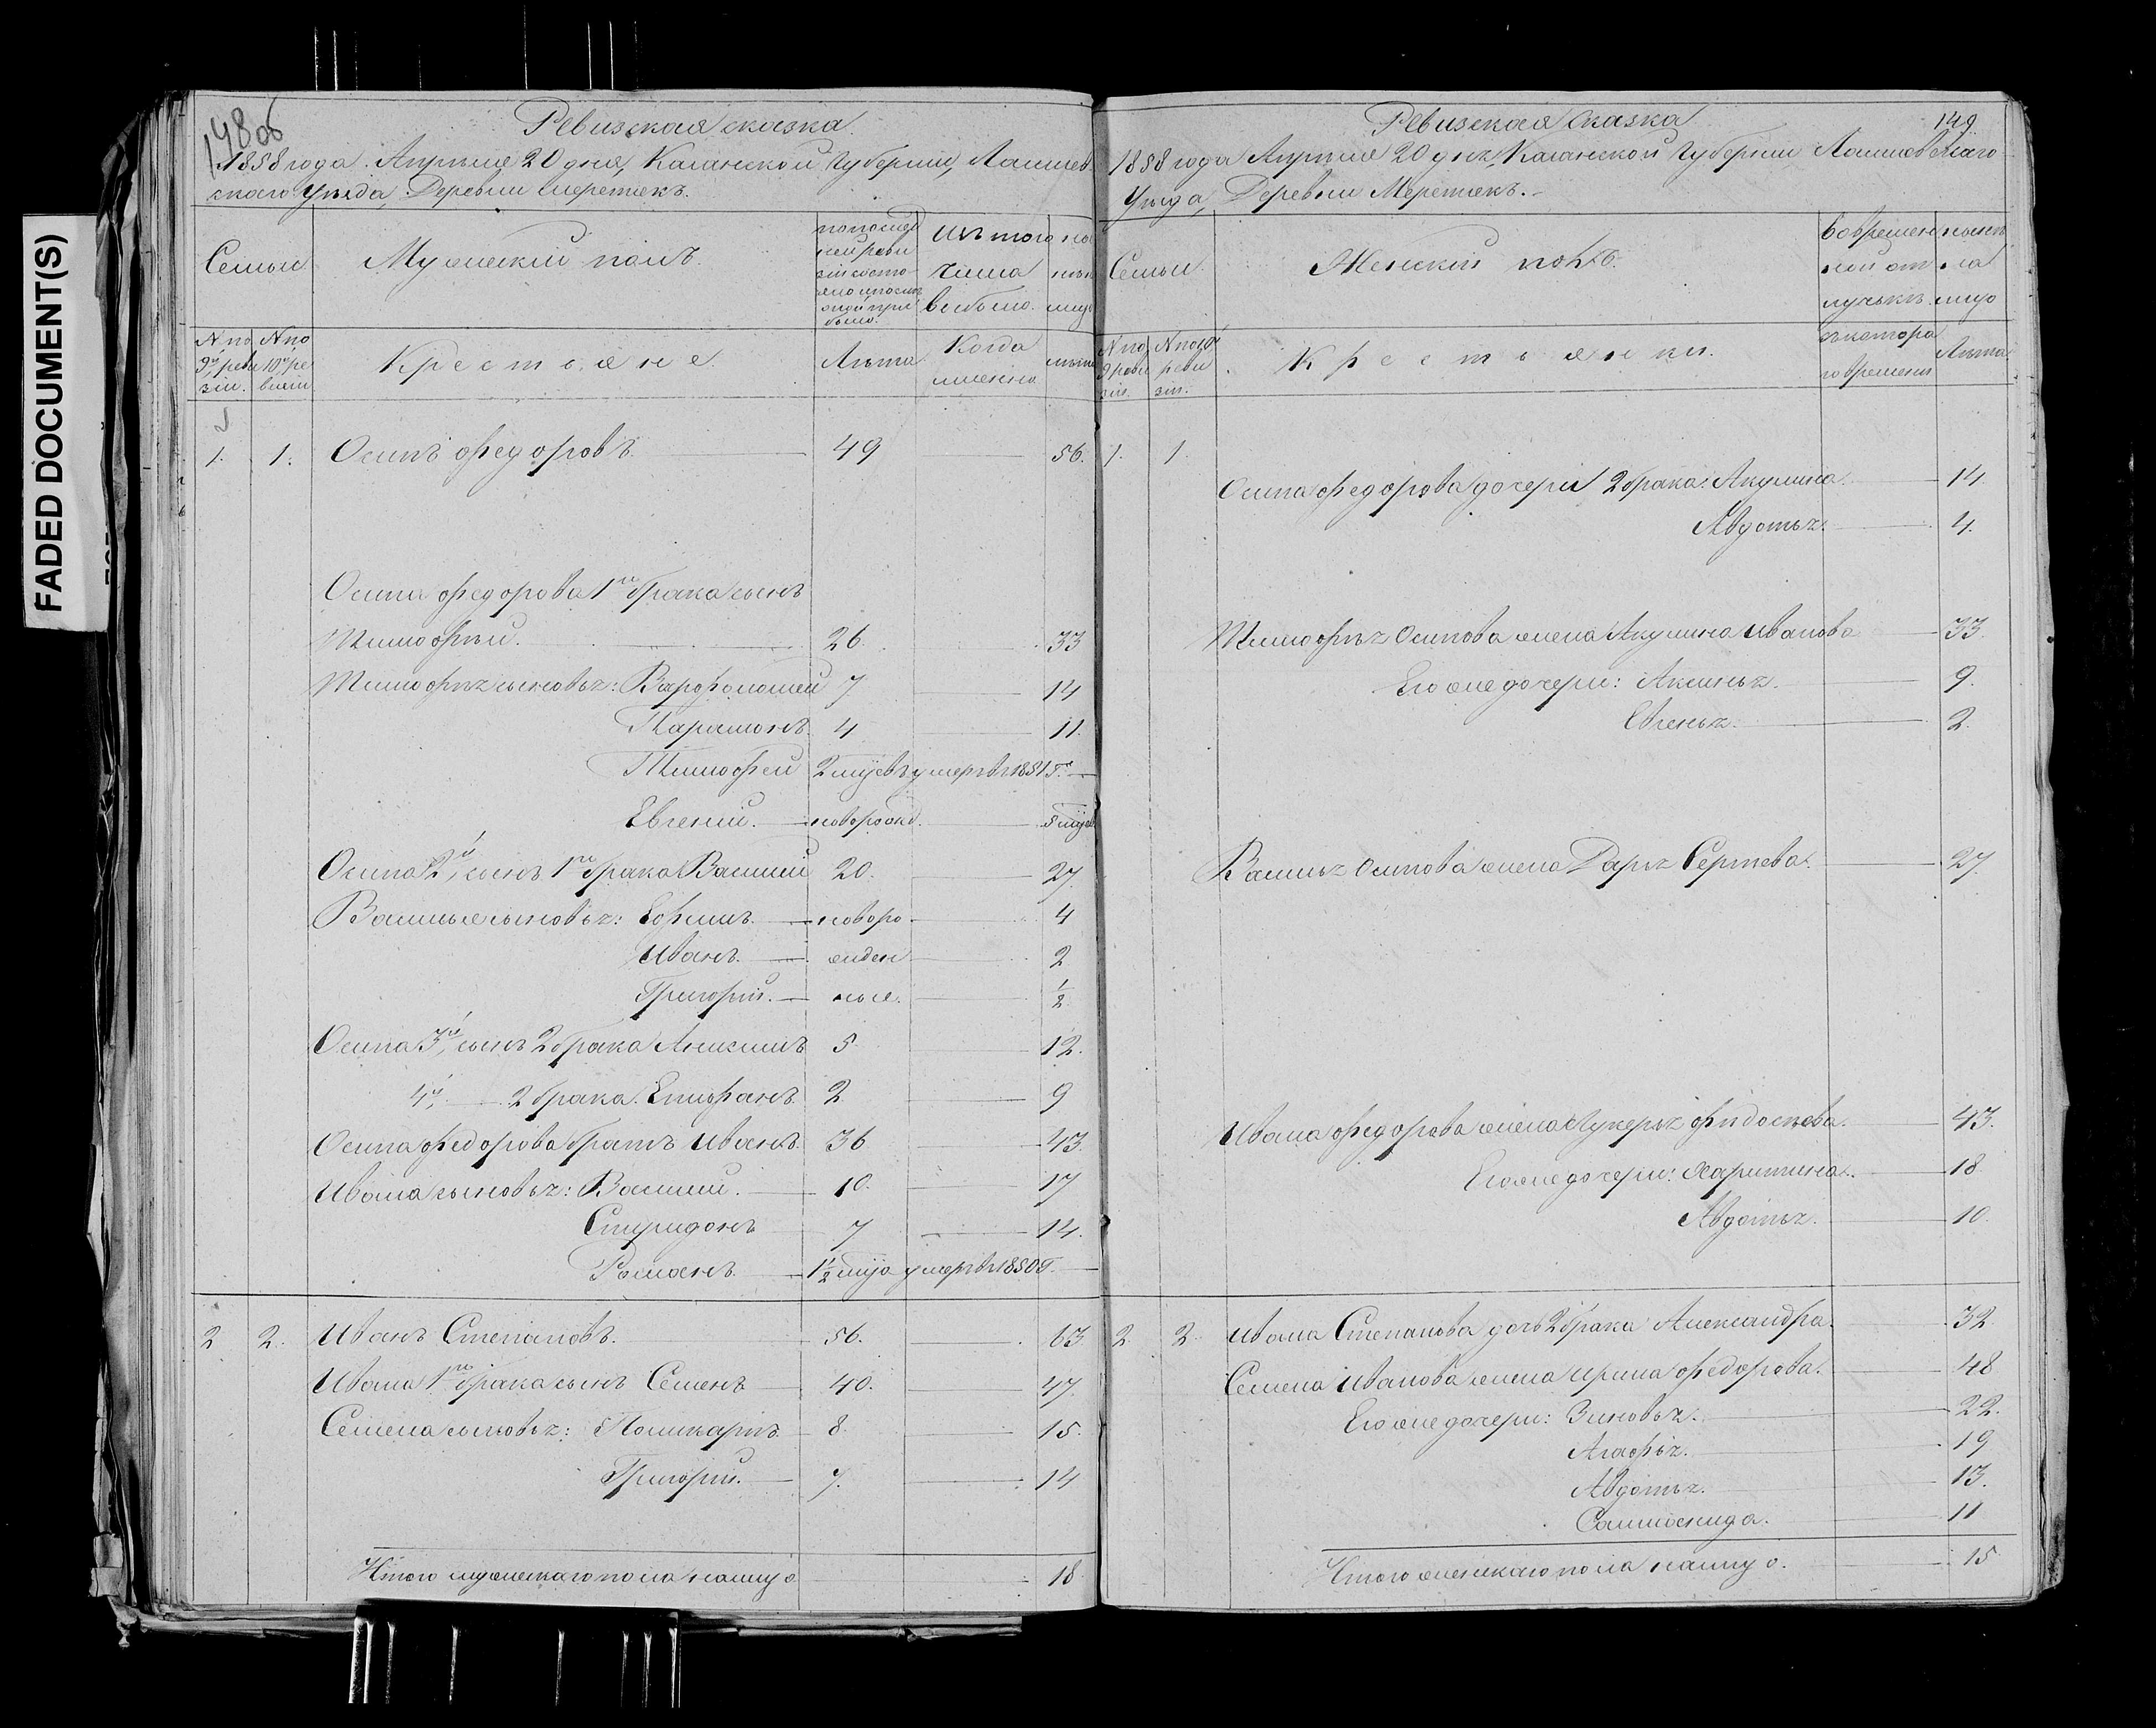 FADED DOCUMENT(S)
148об
Ревизская сказка.
1858 года. Апреля 20 дня, Казанской Губернии, Лаишев
скаго Уезда, Деревни Меретяк.
Семьи
Мужеский полъ.
по послед
ней реви
зіи состо
яло и после
оной при
было.
Изъ того
числа
выбыло.
ны
не на
лицо
N по
9й реви
зіи.
N по
10й ре
визіи
Крестьяне.
Лѣта
Когда
именно
лѣта
1. 1. Осипъ Федоровъ. 49 56.
Осипа Федорова 1го брака сынъ
Тимофѣй. 26. 33
Тимофѣя сыновья: Варфоломей 7 14
Парамонъ. 4 11.
Тимофей 2 мцев умеръ въ 1851 г.
Евгений. новорожд. 5 мцев
Осипа 2й сынъ 1го брака Василий 20. 27.
Василья сыновья: Ефимъ. новоро 4
Иванъ. жден 2
Григорій. ные. ½
Осипа 3й сынъ 2 брака Анисимъ 5 12.
4й 2 брака. Епифанъ. 2. 9
Осипа Федорова братъ Иванъ. 36 43.
Ивана сыновья: Василий. 10. 17
Спиридонъ 7 14.
Романъ. 1½ мца умеръ въ 1850 г.
2 2. Иванъ Степановъ. 56. 63.
Ивана 1го брака сынъ Семенъ 40. 47.
Семена сыновья: Поликарпъ 8. 15.
Григорій. 7. 14
Итого мужескаго пола налицо 18
Ревизская Сказка
149.
1858 года Апреля 20 дня, Казанской Губернии Лаишевскаго
Уезда, Деревни Меретяк.
Семьи.
Женский полъ.
Во времен
ной от
лучкѣ.
ныне
на
лицо
N по
9 реви
зіи.
N по 10
реви
зіи.
Крестьянки.
съ котора
го времени
Лѣта
1. 1.
Осипа Федорова дочери 2 брака: Акулина. 14.
Авдотья. 4.
Тимофѣя Осипова жена Акулина Иванова 33.
Его же дочери: Аксинья. 9.
Евгенья. 2.
Василья Осипова жена Дарья Сергеева. 27.
Ивана Федорова жена Лукерья Федосѣева. 43.
Его же дочери: Харитина. 18
Авдотья. 10.
2. 2. Ивана Степанова дочь 2 брака Александра. 32.
Семена Иванова жена Ирина Федорова. 48
Его же дочери: Зиновья. 22.
Агафья. 19
Авдотья. 13.
Саломонида. 11
Итого женскаго пола налицо. 15